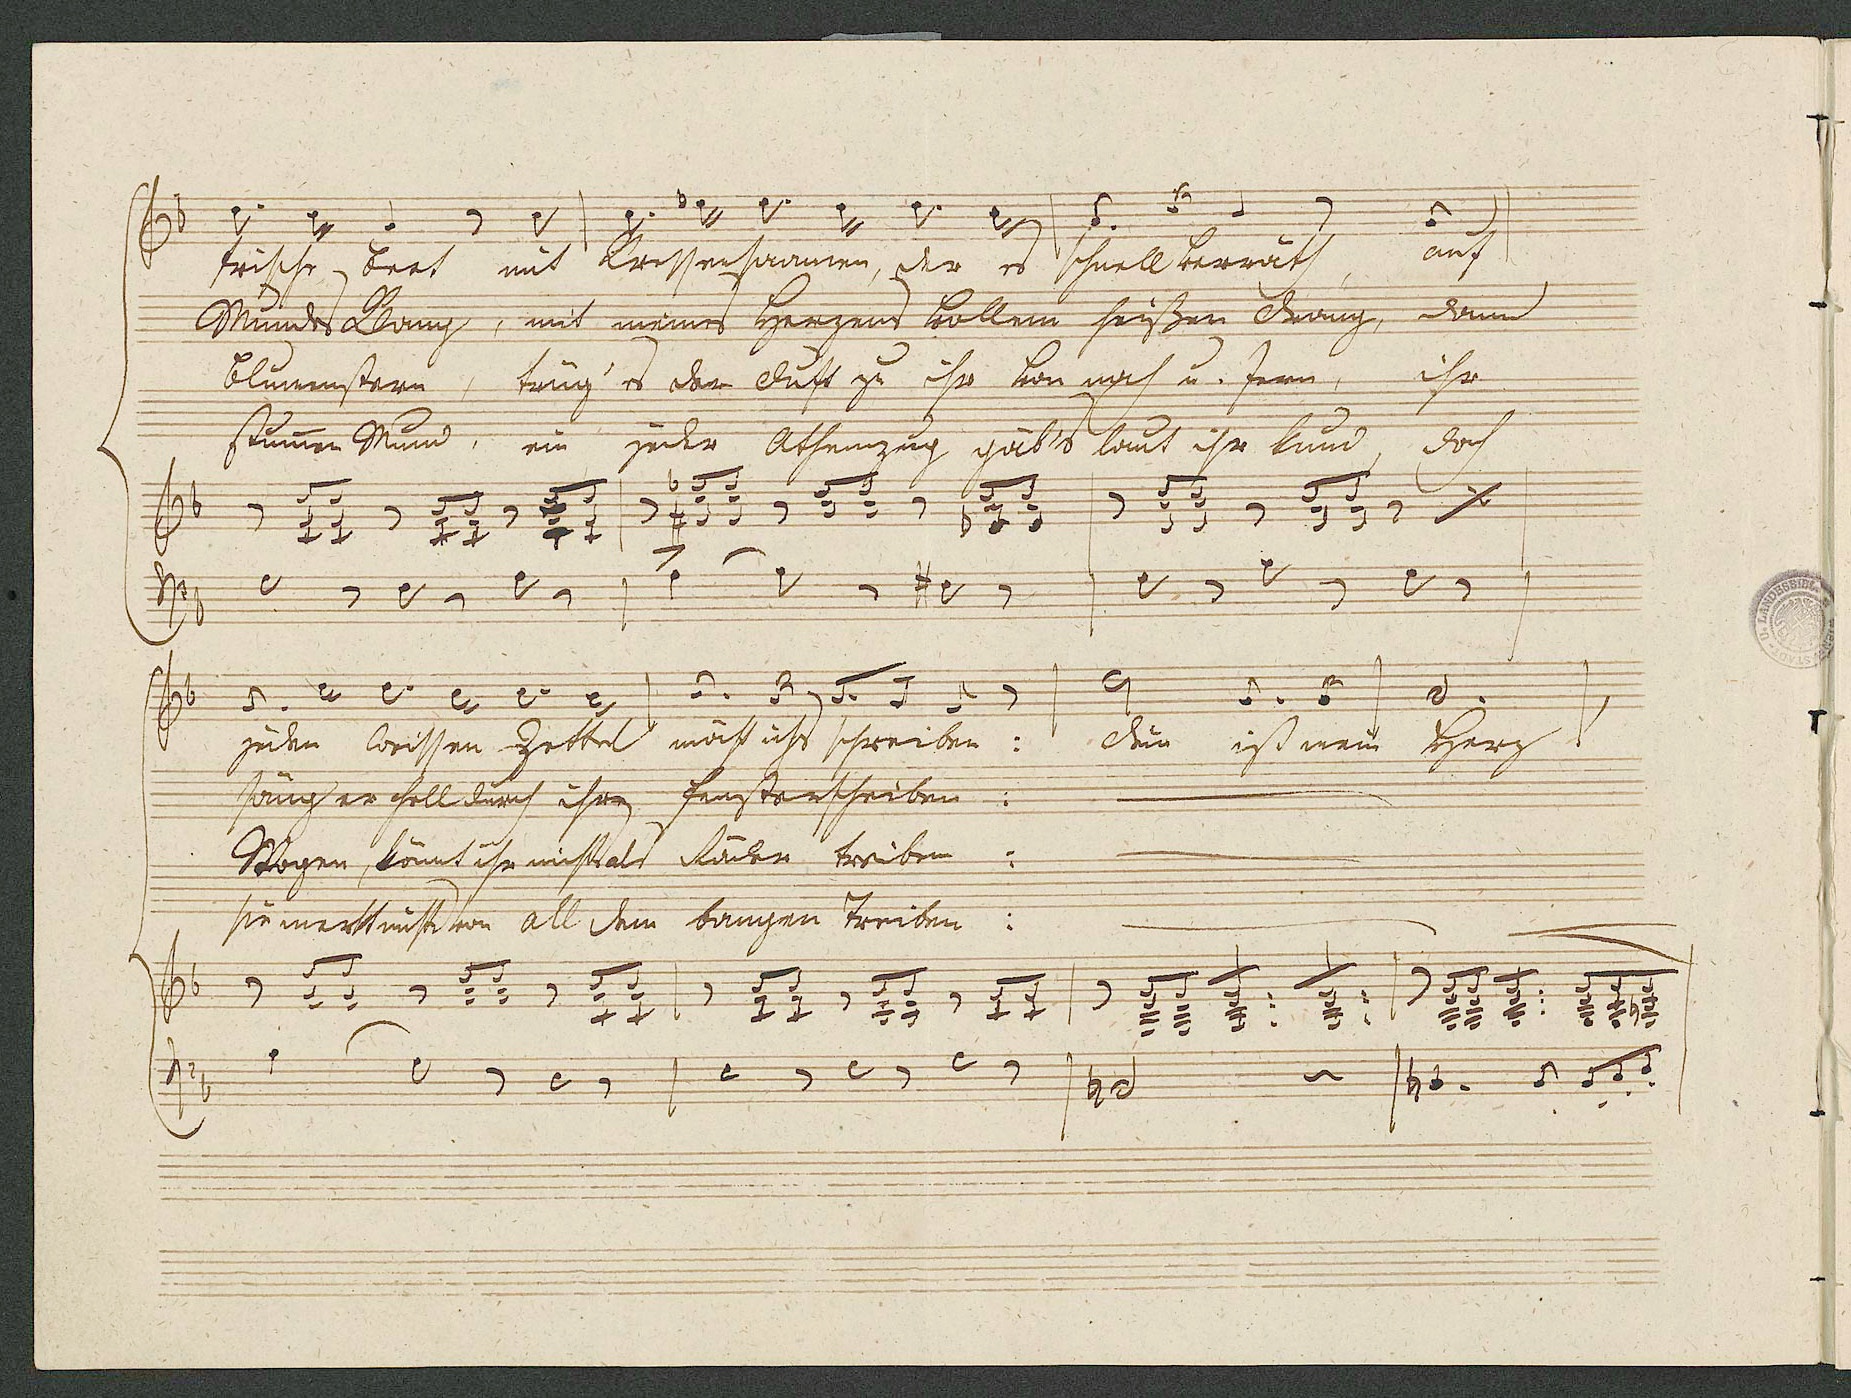 frische Beet mit Kressensaamen, der es schnell verräth, auf
Mundes Klang, mit meines Herzens vollem heißen Drang, dann
Blumenstern, trüg' es der Duft zu ihr von nah u. fern, ihr
stumen Mund, ein jeder Athemzug gäb's laut ihr kund, doch
jeden weissen Zettel möcht ichs schreiben: Dein ist mein Herz
säng er hell durch ihre Fensterscheiben:
Wogen, könnt ihr nichts als Räder treiben:
sie merkt nichts von all dem bangen Treiben:
U. LANDESBIBL.